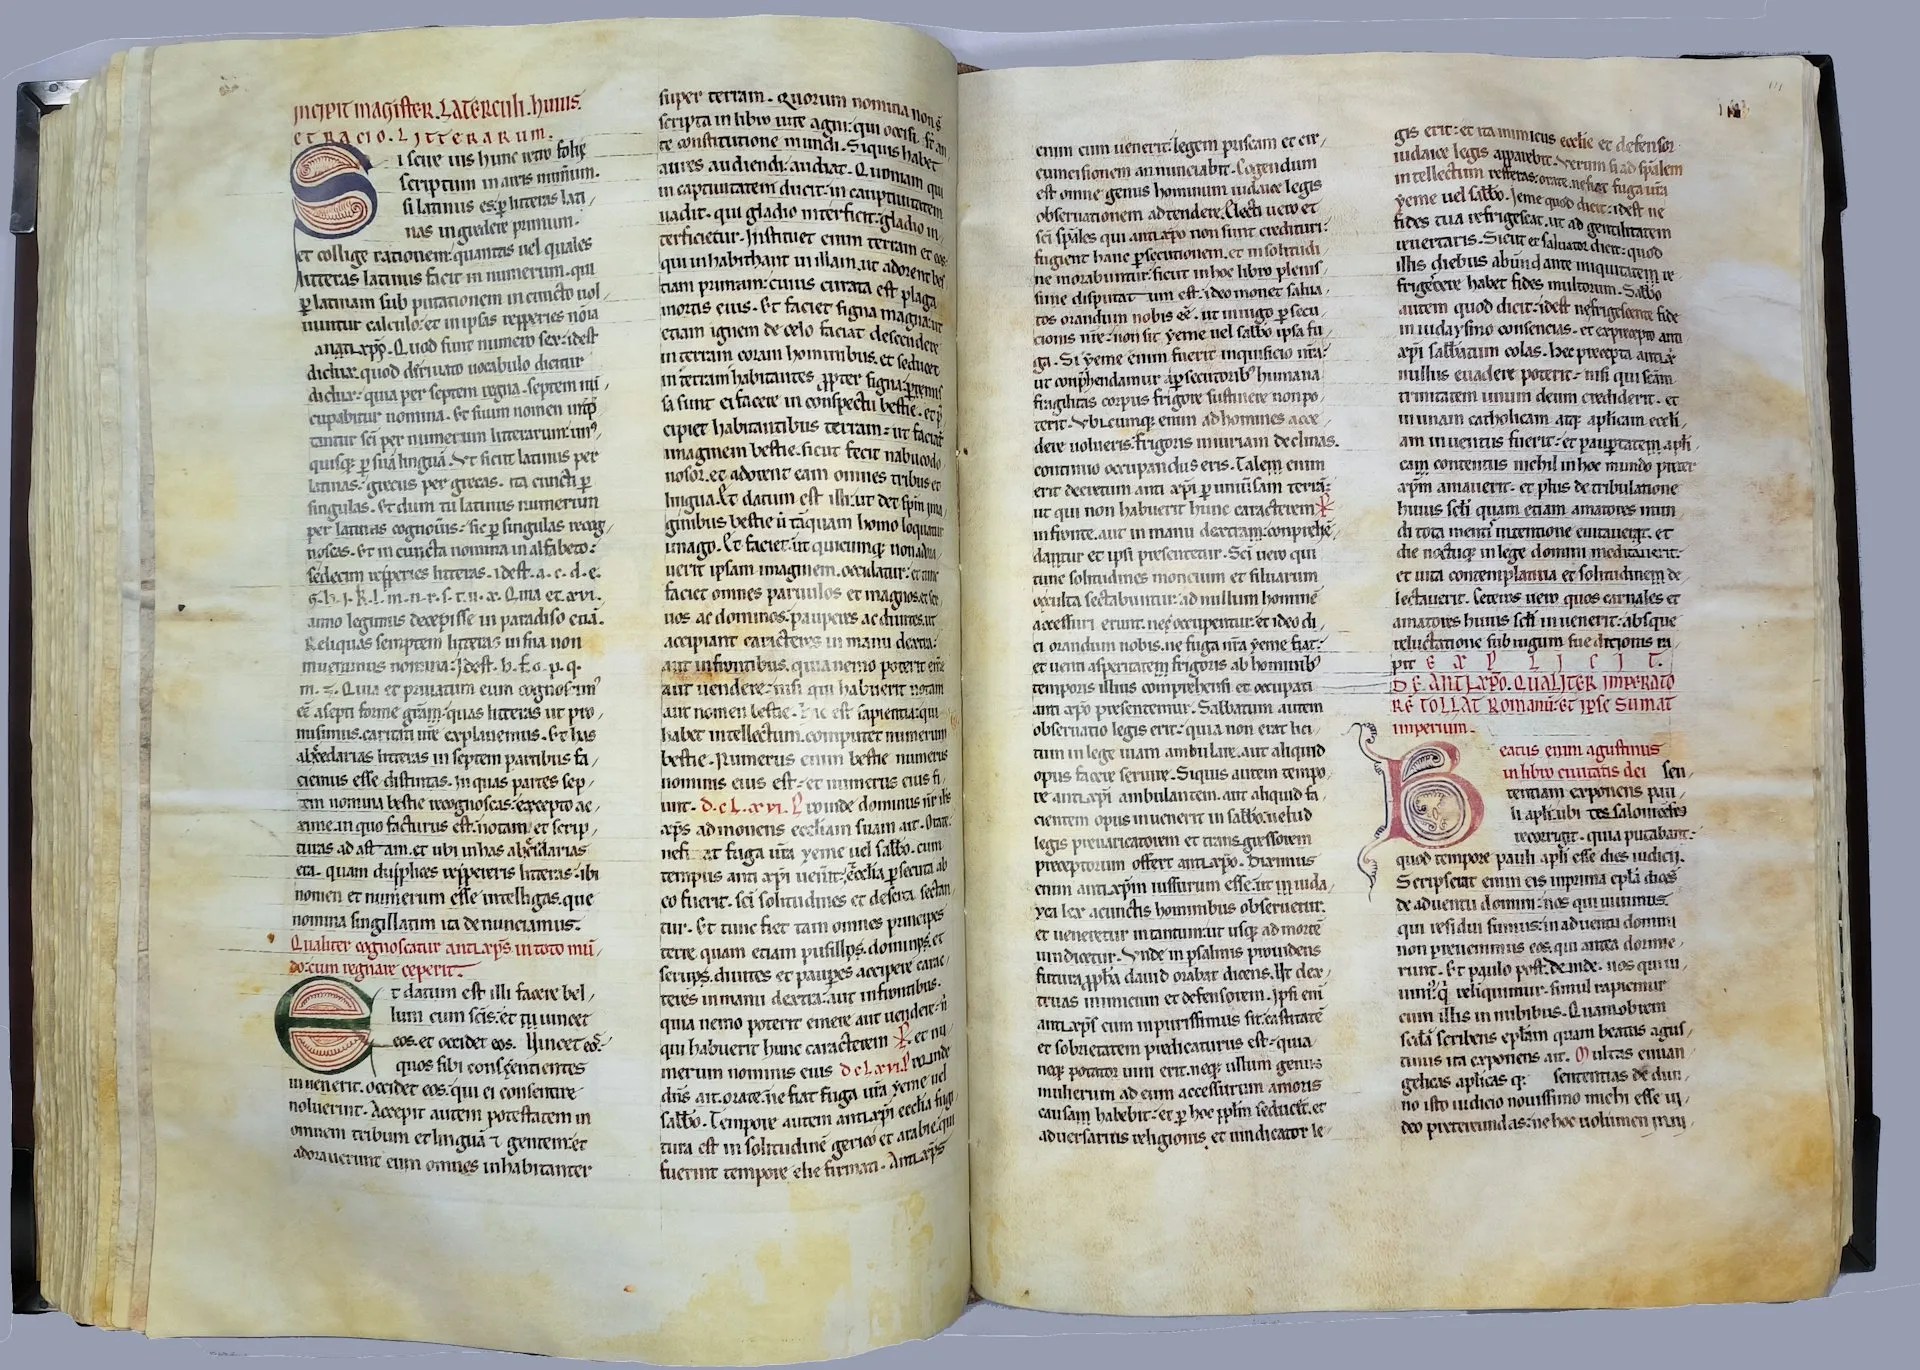 Incipit magister. Laterculi. huius.
et racio. litterarum.
Si scire uis hunc
scriptum
si latinus es: p litteras lati,
nas ingredere primum.
et collige rationem: quantas uel quales
litteras latinus facit in numerum. qui
p latinam sub putationem in cuncto uol,
uuntur calculo: et in ipsas repperies noia
antixpo. Quod sunt numero sex: idest
diclux: quod diriuato uocabulo dicitur
diclux: quia per septem regna. septem nu,
cupabitur nomina. Et suum nomen
sci per numerum litterarum:
quisq; p suā linguā. Vt sicut latinus per
latinas: grecus per grecas. ita cuncti p
singulas. Et dum tu latinus numerum
per latinas cognouis: sic p singulas recog,
noscas. Et in cuncta nomina in alfabeto:
sedecim repperies litteras. idest. a. c. d. e.
G. h. i. k. l. m. n. r. s. t. u. x. Quia et. xvi.
anno legimus decepisse in paradiso euā.
Reliquas semptem litteras in sua non
inuenimus nomina: Idest. b. f. o. p. q.
Quia et priuatum eum
quas litteras ut pro,
misimus. caritati ure explanemus. Et has
litteras in septem partibus fa,
ciemus esse distinctas. In quas partes sep,
tem nomina bestie recognoscas: excepto
in quo facturus est notam: et scrip,
turas ad astam. et ubi in has
quam dusplices respereris litteras: ibi
nomen et numerum esse intelligas. que
nomina singillatim ita denunciamus.
Qualiter cognoscatur antixps in toto mū,
do: cum regnare ceperit.
Et datum est illi facere bel,
lum cum scis: et tu uincet
eos. et occidet eos. Uincet eos:
quos sibi consentientes
inuenerit. occidet eos: qui ei consentire
noluerint. Accepit autem potestatem in
omnem tribum et linguā et gentem: et
adorauerunt eum omnes inhabitanter
super terram. Quorum nomina non s
scripta in libro uite agni: qui occisi. st an,
te constitutione mundi. Siquis habet
aures audiendi: audiat. Quoniam qui
in captiuitatem ducit: in captiuitatem
uadit. qui gladio interficit: gladio in,
terficietur. Instituet enim terram et eos
qui inhabithant in illam. ut adorent bes,
tiam primam: cuius curata est plaga
mortis eius. Et faciet signa magna: ut
etiam ignem de celo faciat descendere
in terram coram hominibus. et seducet
in terram habitantes propter signa: permis
sa sunt ei facere in conspectu bestie. et
cipiet habitantibus terram: ut faciat
imaginem bestie. sicut fecit nabucodo
nosor. et adorent eam omnes tribus et
lingua. Et datum est illi: ut det spm ima,
ginibus bestie ut tāquam homo loquatur
imago. Et faciet: ut quicumq; non ado,
uerit ipsam imaginem. occidatur: et tunc
faciet omnes paruulos et magnos. et ser,
uos ac dominos. pauperes ac diuites. ut
accipiant caracteres in manu dextra:
aut in frontibus. quia nemo poterit emē
aut uendere: nisi qui habuerit notam
aut nomen bestie. Hac est sapientia: qui
habet intellectum. computet numerum
bestie. Numerus enim bestie numerus
nominis eius est: et numerus eius fi,
unt. D. c. l. xvi. Proinde dominus nr ihs
xps admonens eccliam suam ait. Orate:
nefiat fuga ura yeme uel sabbo. cum
tempus anti xpi uenit: ecclia psecuta ab
eo fuerit. sci solitudines et deserta sectan,
tur. Et tunc fiet tam omnes principes
terre quam etiam pusillos. dominos. et
seruos. diuites et paupes accipere carac,
teres in manu dextra: aut in frontibus.
quia nemo poterit emere aut uendere: n
qui habuerit hunc caracterem. et nu,
merum nominis eius dclxvi. Proinde
dns ait. orate: ne fiat fuga ura yeme uel
sabbo. Tempore autem antixpi ecclia fugi,
tura est in solitudinē gerico et arabie. qui
fuerint tempore elie firmati. Antixps
enim cum uenerit: legem priscam et cir,
cumcisionem annunciabit. Cogendum
est omne genus hominum iudaice legis
obseruationem adtendere. Electi uero et
sci spales qui antixpo non sunt credituri:
fugient hanc psecutionem. et in solitudi
ne morabuntur: sicut in hoc libro plenis,
sime disputatum est: ideo monet salua,
tos orandum nobis eē. ut in uigo psecu,
cionis nre: non sit yeme uel sabbo ipsa fu,
ga. Si yeme enim fuerit inquisicio ura:
ut conphendamur apsecutoribus humana
fragilitas corpus frigore sustinere non po,
terit. Vbicumque enim ad homines acce,
dere uolueris: frigoris iniuriam declinas.
continuo occupandus eris. Talem enim
erit decretum anti xpi p uniuersam terrā:
ut qui non habuerit hunc caracterem
in fronte. aut in manu dextram: conprehē,
dantur et ipsi presentetur. Sci uero qui
tunc solitudines moncium et siluarum
occulta sectabuntur: ad nullum hominē
accessuri erunt. nec occupentur: et ideo di,
ci orandum nobis. ne fuga ura yeme fiat:
et ueni asperitatem frigoris ab hominib;
temporis illius comprehensi et occupati
anti xpo presentemur. Sabbatum autem
obseruatio legis erit: quia non erat lici,
tum in lege uiam ambulare. aut aliquid
opus facere seruire. Siquis autem tempo,
re antixpi ambulantem. aut aliquid fa,
cientem opus inuenerit in sabbo: uelud
legis preuaricatorem et transgressorem
preceptorum offert antixpo. Diximus
enim antixpm iussurum esse: ut in iuda,
yca lex acunctis hominibus obseruetur.
et ueneretur intantum: ut usq; ad mortē
uindicetur. Vnde in psalmis prouidens
futura ppha dauid orabat dicens. Ut dex,
truas inimicum et defensorem. Ipsi eni
antixps cum inpurissimus sit: castitatē
et sobrietatem predicaturus est: quia
neq; potator uini erit. neq; ullum genus
mulierum ad eum accessurum amoris
causam habebit: et p hoc pplm seducet. et
aduersarius religionis. et uindicator le,
gis erit: et ita inimicus ecclie et defensor
iudaice legis apparebit. Verum si ad spalem
intellectum refferas: orate. nefiat fuga ura
yeme uel sabbo. Ieme quod dicit: idest ne
fides tua refrigescat. ut ad gentilitatem
reuertaris. Sicut et saluator dicit: quod
illis diebus abundante iniquitatem re,
frigescere habet fides multorum. Sabbo
autem quod dicit: idest nefrigescente fide
in iudaysmo consencias. et expreceptο anti
xpi sabbatum colas. Hec precepta antixpi
nullus euadere poterit: nisi qui scām
trinitatem unum deum crediderit. et
in unam catholicam atq; aplicam eccli,
am inuentus fuerit: et pauptatem apli,
cam contentus nichil in hoc mundo preter
xpm amauerit. et plus de tribulatione
huius scli quam etiam amatores mun,
di tota mentis intentione euitauerit. et
die noctuq; in lege domini meditauerit:
et uita contemplatiua et solitudinem de,
lectauerit. Seteros uero quos carnales et
amatores huius scli inuenerit: absque
reluctatione sub iugum sue dicionis ra,
pit E X P L I C I T.
DE ANTIXPO. QUALITER IMPERATO
RE TOLLAT ROMANU: ET IPSE SUMAT
imperium.
Beatus enim agustinus
in libro ciuitatis dei sen,
tentiam exponens pau,
li apli: ubi tessalonicēsis
correxit. quia putabant:
quod tempore pauli apli esse dies iudicij.
Scripserat enim eis in prima epla dicēs
de aduentu domini: nos qui uiuimus
qui residui sumus: in aduentu domini
non preuenimus eos. qui antea dormie,
runt. Et paulo post. deinde. nos qui ui,
uim; q reliquimur. simul rapiemur
cum illis in nubibus. Quamobrem
scdā scribens eplam quam beatus agus,
tinus ita exponens ait. Multas euuan,
gelicas aplicas q; sententias de diui,
no isto iudicio nouissimo michi esse ui,
deo pretereundas: ne hoc uolumen in ni,